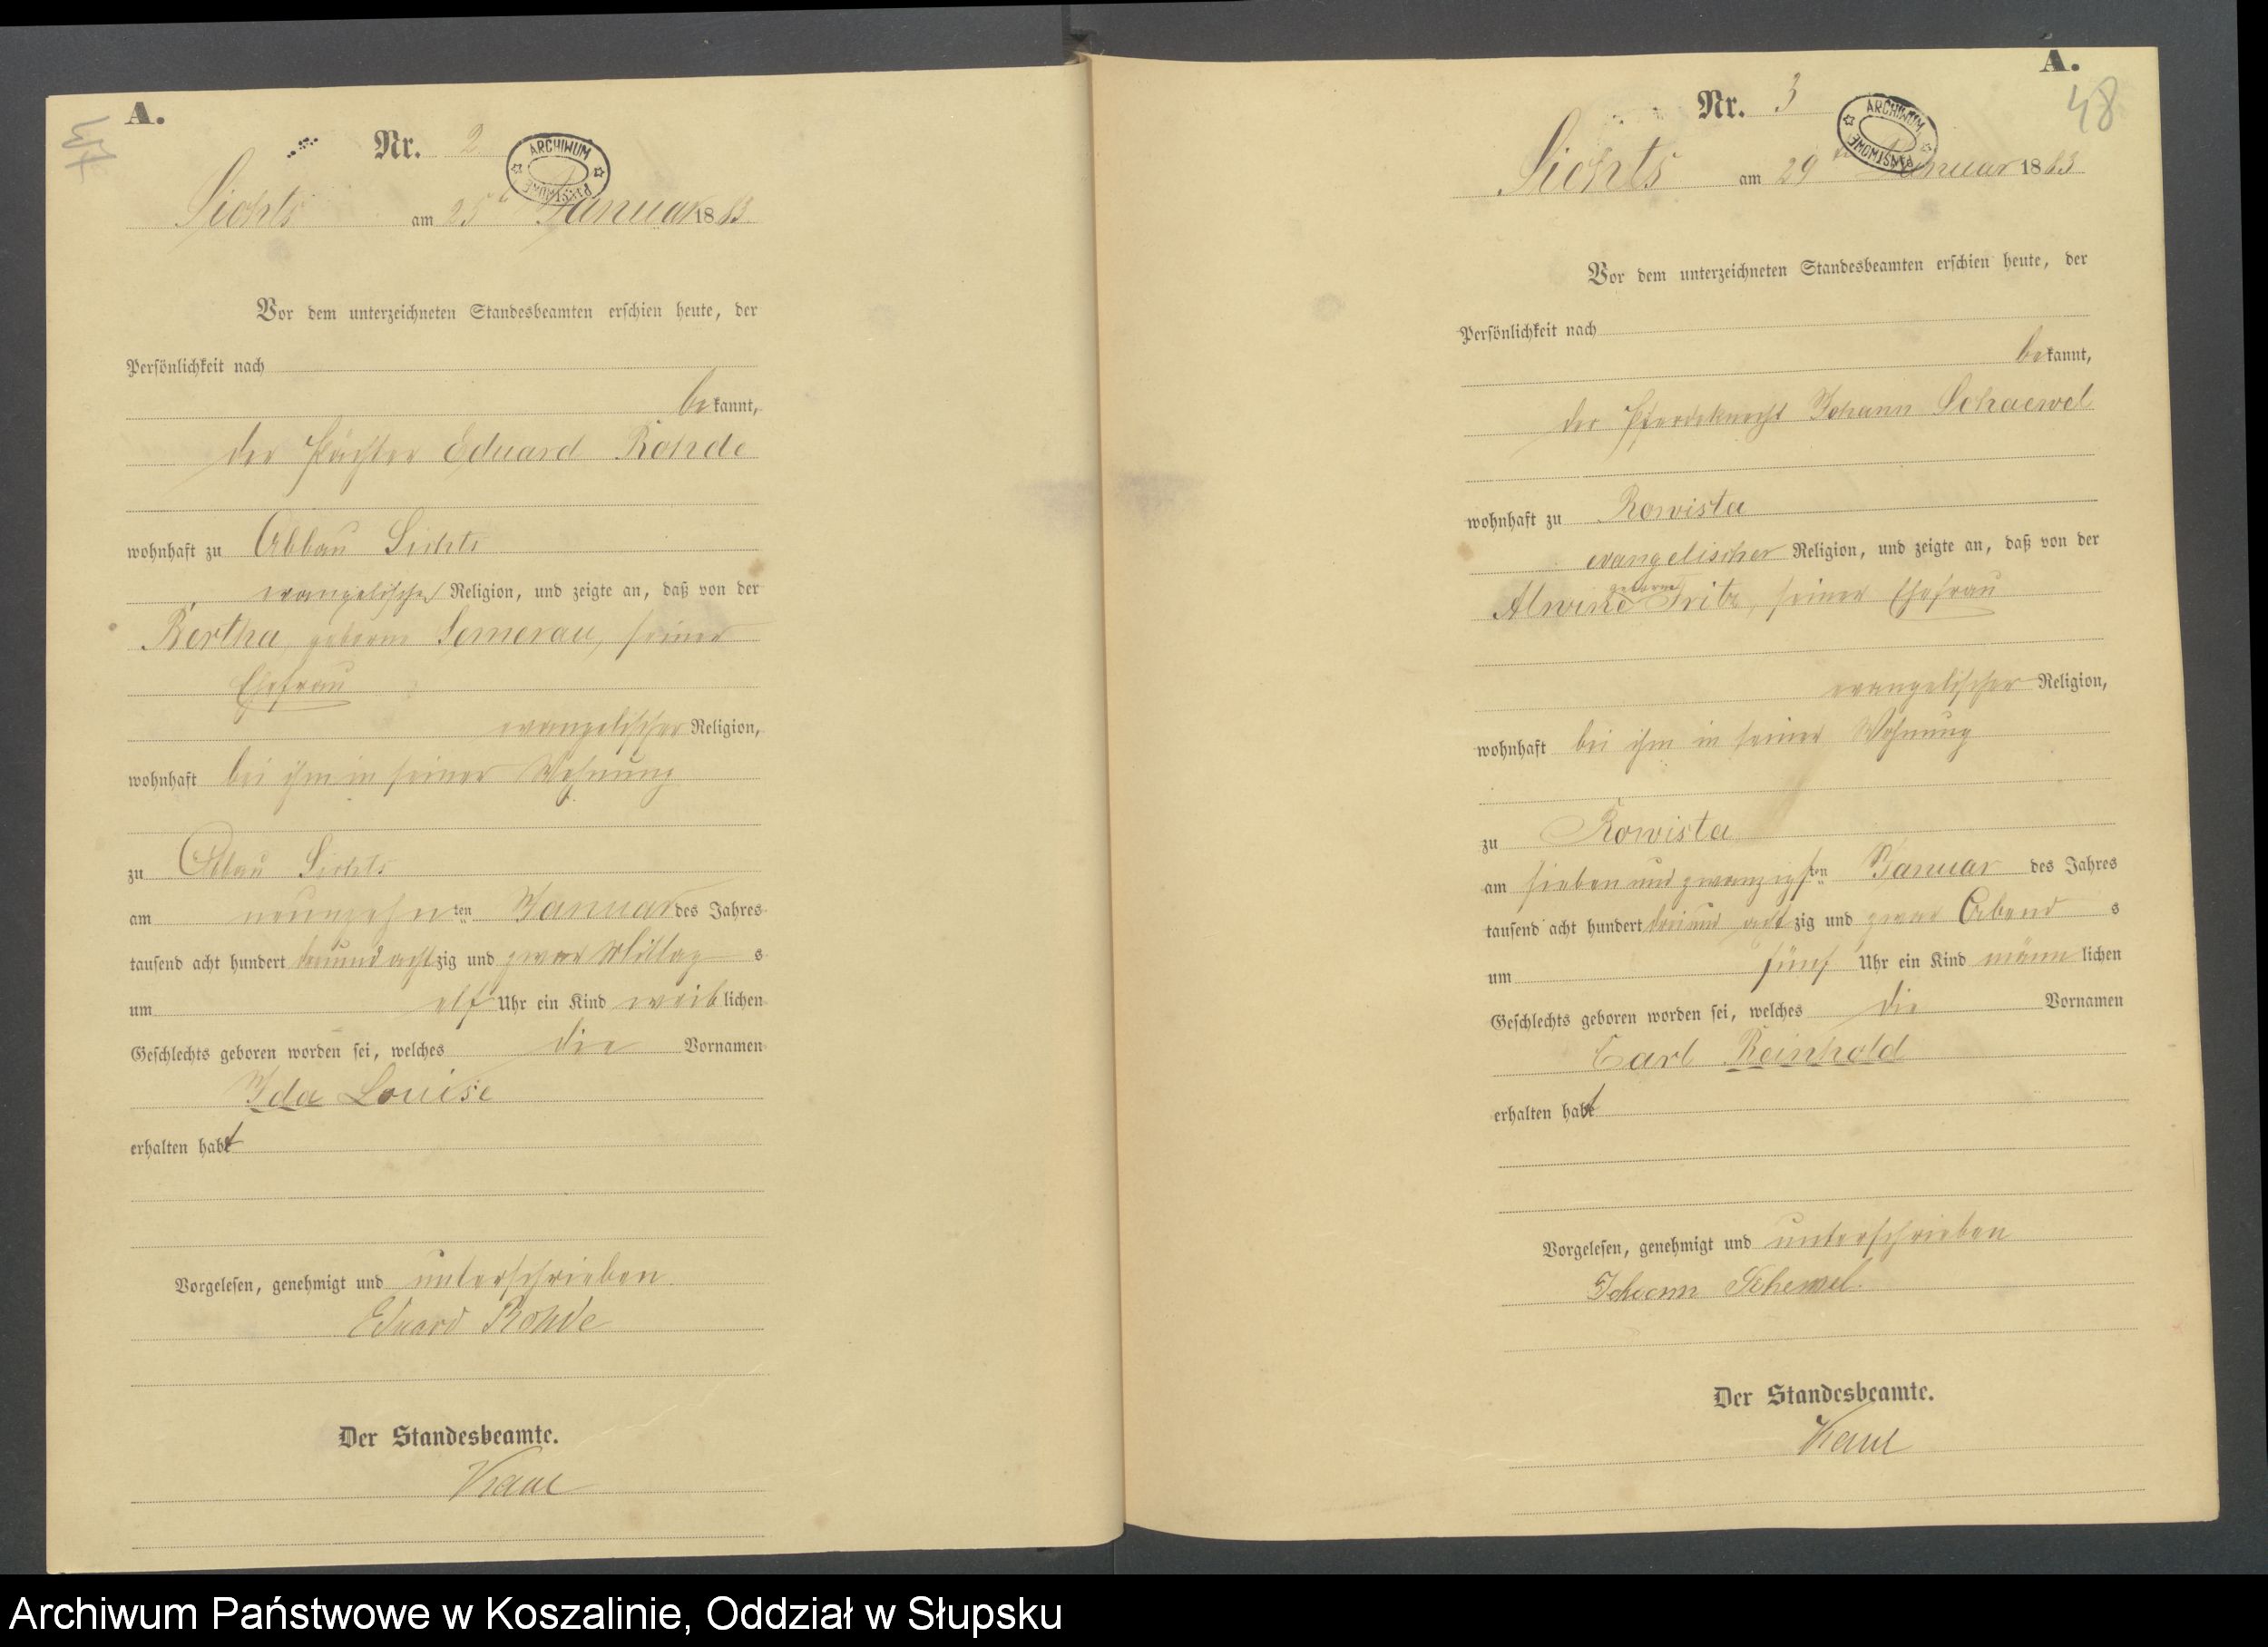 A.
47
Nr. 2
ARCHIWUM PAŃSTWOWE
Lichts am 25t Januar 1883
Vor dem unterzeichneten Standesbeamten erschien heute, der
Persönlichkeit nach
bekannt,
der Pächter Eduard Rohde
wohnhaft zu Abbau Lichts
evangelischer Religion, und zeigte an, daß von der
Bertha geborne Semerau, seiner
Ehefrau
evangelischer Religion,
wohnhaft bei ihm in seiner Wohnung
zu Abbau Lichts
am neunzehnten Januar des Jahres
tausend acht hundert dreiundachtzig und zwar Mittags
um elf Uhr ein Kind weiblichen
Geschlechts geboren worden sei, welches die Vornamen
Ida Louise
erhalten habe
Vorgelesen, genehmigt und unterschrieben.
Eduard Rohde
Der Standesbeamte.
A.
48
Nr. 3
ARCHIWUM PAŃSTWOWE
Lichts am 29ten Januar 1883
Vor dem unterzeichneten Standesbeamten erschien heute, der
Persönlichkeit nach
bekannt,
der Pferdeknecht Johann Schaewel
wohnhaft zu Rowista
evangelischer Religion, und zeigte an, daß von der
Alwine geborne Tritz, seiner Ehefrau
evangelischer Religion,
wohnhaft bei ihm in seiner Wohnung
zu Rowista
am siebenundzwanzigsten Januar des Jahres
tausend acht hundert dreiundachtzig und zwar Abends
um fünf Uhr ein Kind männlichen
Geschlechts geboren worden sei, welches die Vornamen
Carl Reinhold
erhalten habe
Vorgelesen, genehmigt und unterschrieben
Johann Schewel.
Der Standesbeamte.
Archiwum Państwowe w Koszalinie, Oddział w Słupsku